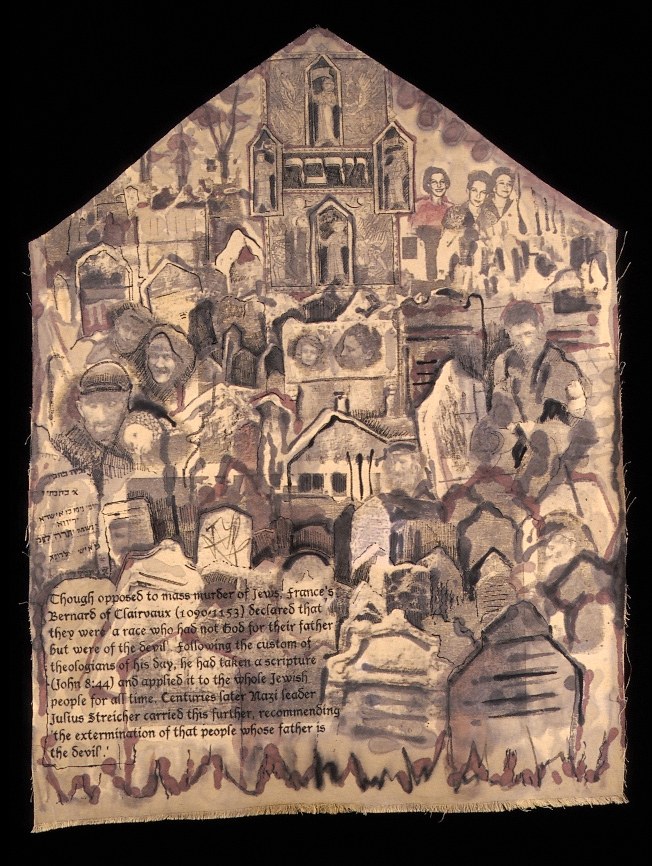 Though opposed to mass murder of Jews, France's
Bernard of Clairvaux (1090-1153) declared that
they were 'a race who had not God for their father
but were of the devil'. Following the custom of
theologians of his day, he had taken a scripture
(John 8:44) and applied it to the whole Jewish
people for all time. Centuries later Nazi leader
Julius Streicher carried this further, recommending
'the extermination of that people whose father is
the devil.'